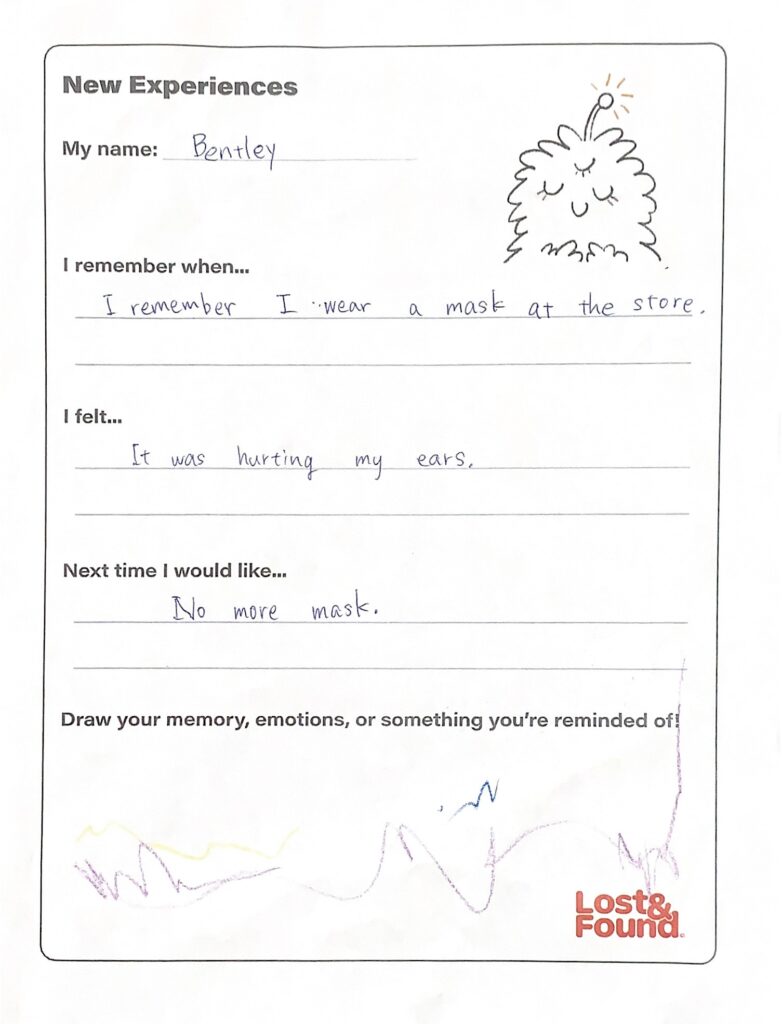 New Experiences
My name: Bentley
I remember when...
I remember I wear a mask at the store.
I felt...
It was hurting my ears.
Next time I would like...
No more mask.
Draw your memory, emotions, or something you're reminded of!
Lost&
Found